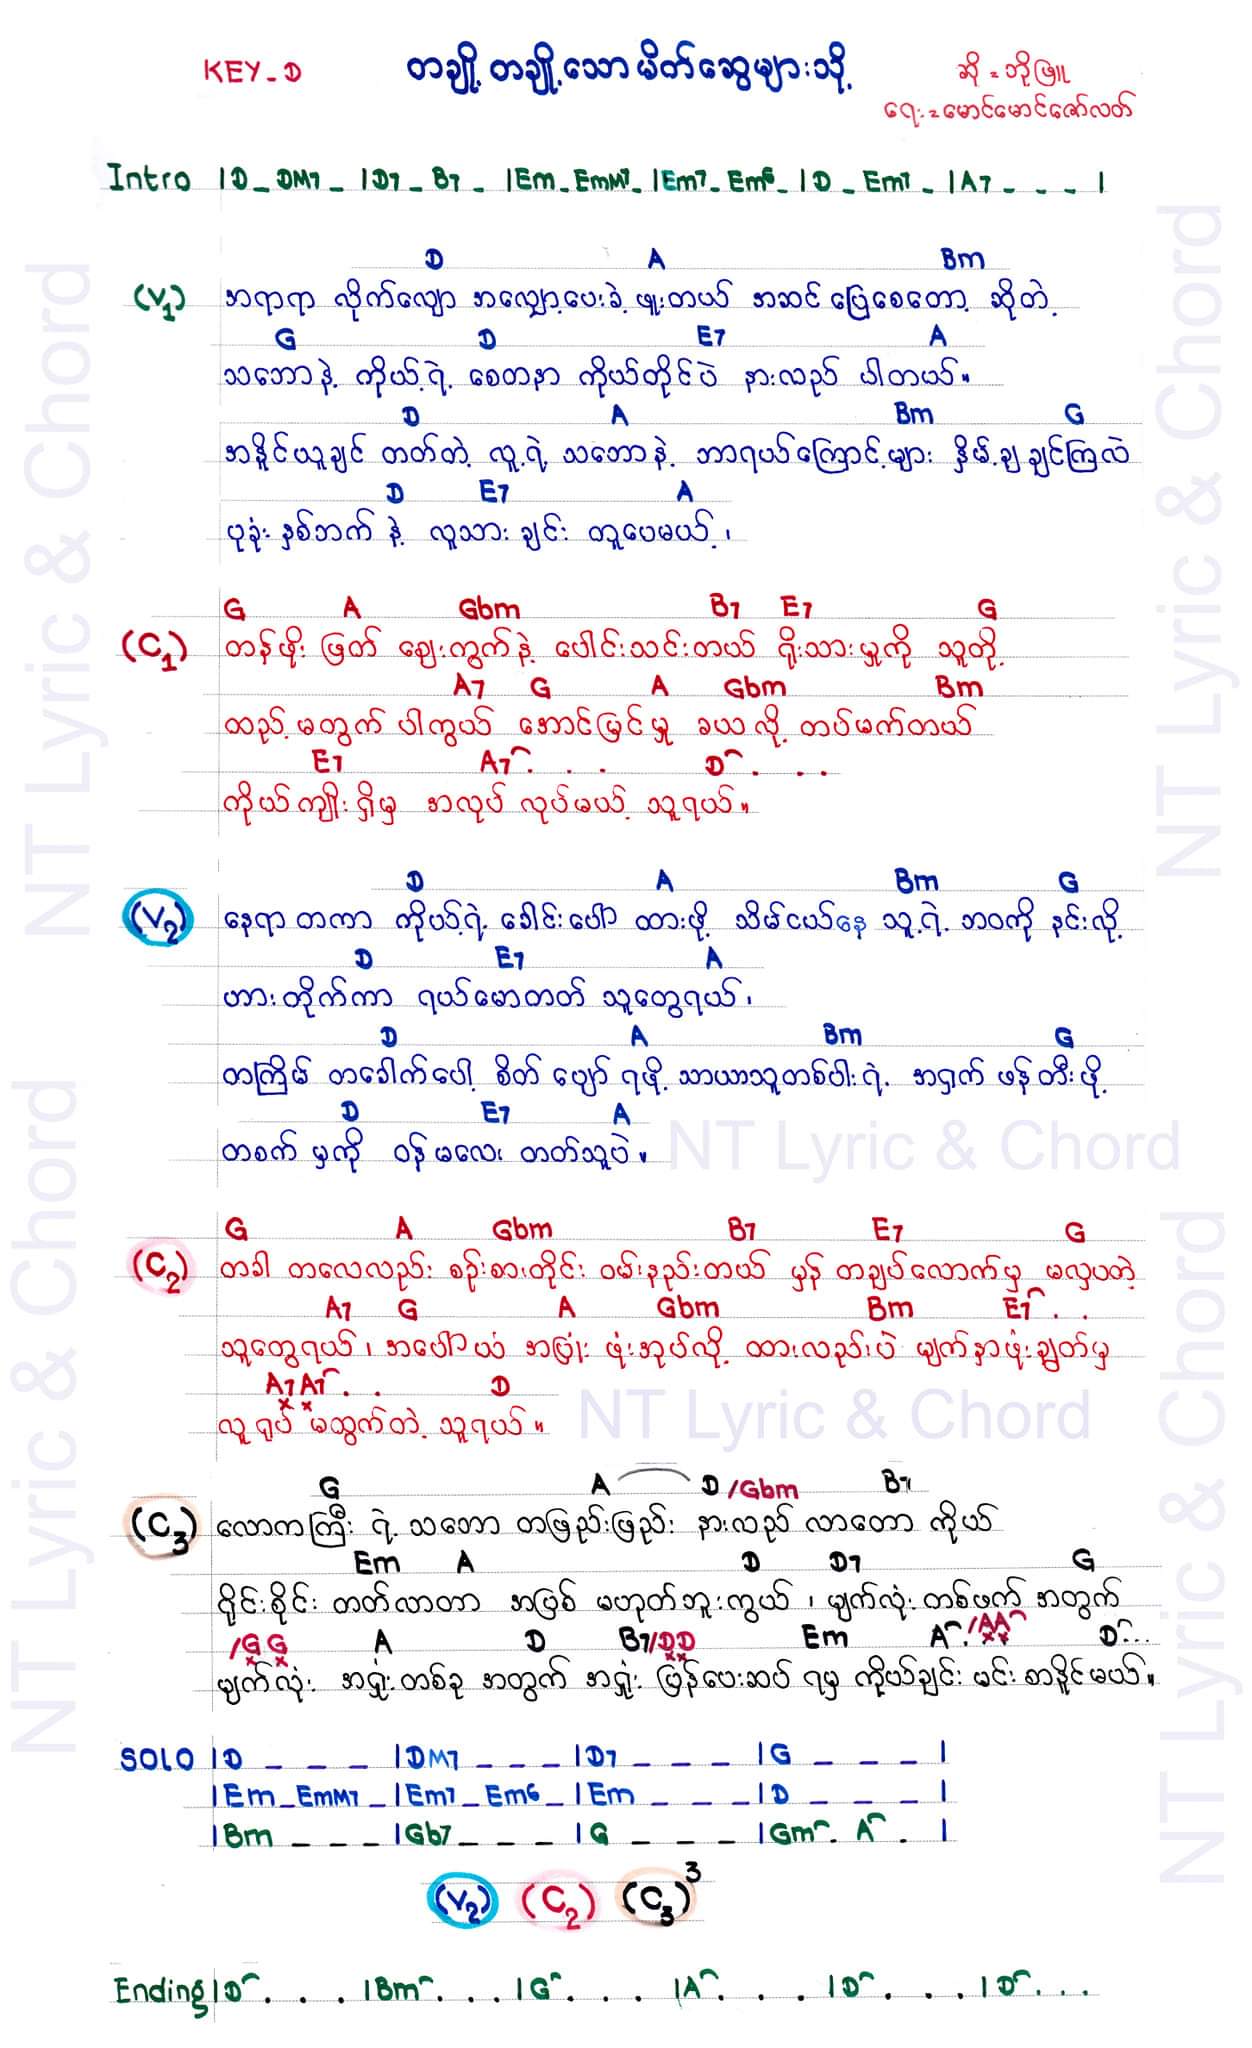 KEY_D
တချို့ တချို့သော မိတ်ဆွေများသို့
ဆို = ဘိုဖြူ
ရေး = မောင်မောင်ဇော်လတ်
Intro |D_ DM7 _ |D7 _ B7 _ |Em_EmM7_|Em7_Em6_|D _ Em7 _ |A7 _ _ _ |
D A Bm
(V1) အရာရာ လိုက်လျော အလျှော့ပေးခဲ့ ဖူးတယ် အဆင် ပြေစေတော့ ဆိုတဲ့
G D E7 A
သဘောနဲ့ ကိုယ့်ရဲ့ စေတနာ ကိုယ်တိုင်ပဲ နားလည် ပါတယ်။
D A Bm G
အနိုင်ယူချင် တတ်တဲ့ လူ့ရဲ့ သဘောနဲ့ ဘာရယ်ကြောင့်များ နှိမ့်ချ ချင်ကြလဲ
D E7 A
ပုခုံး နှစ်ဘက် နဲ့ လူသား ချင်း တူပေမယ့်၊
G A Gbm B7 E7 G
(C1) တန်ဖိုး ဖြတ် ဈေးကွက်နဲ့ ပေါင်းသင်းတယ် ရိုးသားမှုကို သူတို့
A7 G A Gbm Bm
ထည့်မတွက် ပါကွယ် အောင်မြင်မှု ခယလို့ တပ်မက်တယ်
E7 A7 . . . D . . . .
ကိုယ်ကျိုးရှိမှ အလုပ် လုပ်မယ့် သူရယ်။
D A Bm G
(V2) နေရာ တကာ ကိုယ့်ရဲ့ ခေါင်းပေါ် ထားဖို့ သိမ်ငယ်နေ သူ့ရဲ့ ဘဝကို နင်းလို့
D E7 A
ဟားတိုက်ကာ ရယ်မောတတ် သူတွေရယ်၊
D A Bm G
တကြိမ် တခေါက်ပေါ့ စိတ် ပျော် ရဖို့ သာယာသူတစ်ပါးရဲ့ အငှက် ဖန်တီးဖို့
D E7 A
တစက် မှကို ဝန်မလေး တတ်သူပဲ။
G A Gbm B7 E7 G
(C2) တခါ တလေလည်း စဉ်းစားတိုင်း ဝမ်းနည်းတယ် မှန် တချပ်လောက်မှ မလှပတဲ့
A7 G A Gbm Bm E7 . .
သူတွေရယ်၊ အပေါ်ယံ အပြုံး ဖုံးအုပ်လို့ ထားလည်းပဲ မျက်နှာဖုံးချွတ်မှ
A7 A7 . . D
လူရုပ် မထွက်တဲ့ သူရယ်။
G A D /Gbm B7
(C3) လောကကြီး ရဲ့ သဘော တဖြည်းဖြည်း နားလည် လာတော ကိုယ်
Em A D D7 G
ရိုင်းစိုင်း တတ်လာတာ အဖြစ် မဟုတ်ဘူးကွယ်၊ မျက်လုံး တစ်ဖက် အတွက်
/G G A D B7/DD Em A . /AA D . . .
မျက်လုံး အရှုံးတစ်ခု အတွက် အရှုံး ပြန်ပေးဆပ် ရမှ ကိုယ်ချင်း မင်းစာနိုင်မယ်။
SOLO |D _ _ _ |DM7 _ _ _ |D7 _ _ _ |G _ _ _ |
|Em_EmM7_|Em7_Em6_|Em _ _ _ |D _ _ _ |
|Bm _ _ _ |Gb7 _ _ _ |G _ _ _ |Gm . A . |
(V2) (C2) (C3)3
Ending |D . . . |Bm . . . |G . . . |A . . . |D . . . |D . . .
NT Lyric & Chord
NT Lyric & Chord
NT Lyric & Chord
NT Lyric & Chord
NT Lyric & Chord
NT Lyric & Chord